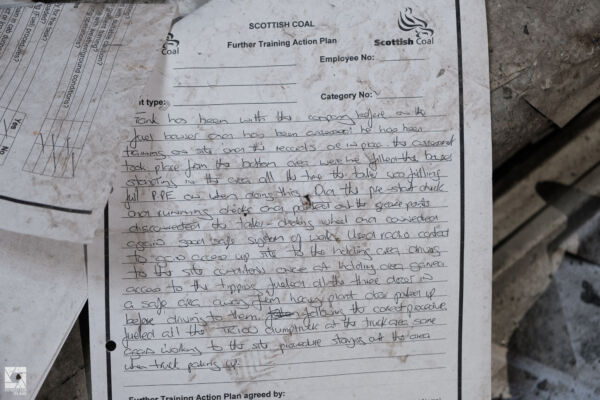 SCOTTISH COAL
Further Training Action Plan
Scottish Coal
Employee No:
t type:
Category No:
Frank has been with the company before on the
fuel bowser and has been assessed he has been
training on site and the records are in place the assessment
took place from the bottom area were he filled the bowser
standing in the area all the time the tanker was filling
full PPE on when doing this. Did the pre-start check
and running checks and pointed out the grease points
disconnected the tanker checking wheel and connected
again good safe system of work. Used radio contact
to gain access up site to the holding area driving
to the site conditions once at holding area gained
access to the tipping fueled all the three dozer in
a safe area away from heavy plant dozer parked up
before driving to them following the correct procedure.
fueled all the dumptruck at the truck area same
again working to the site procedure staying out the area
when truck parking up.
Further Training Action Plan agreed by:
Yes
No
ground conditions?